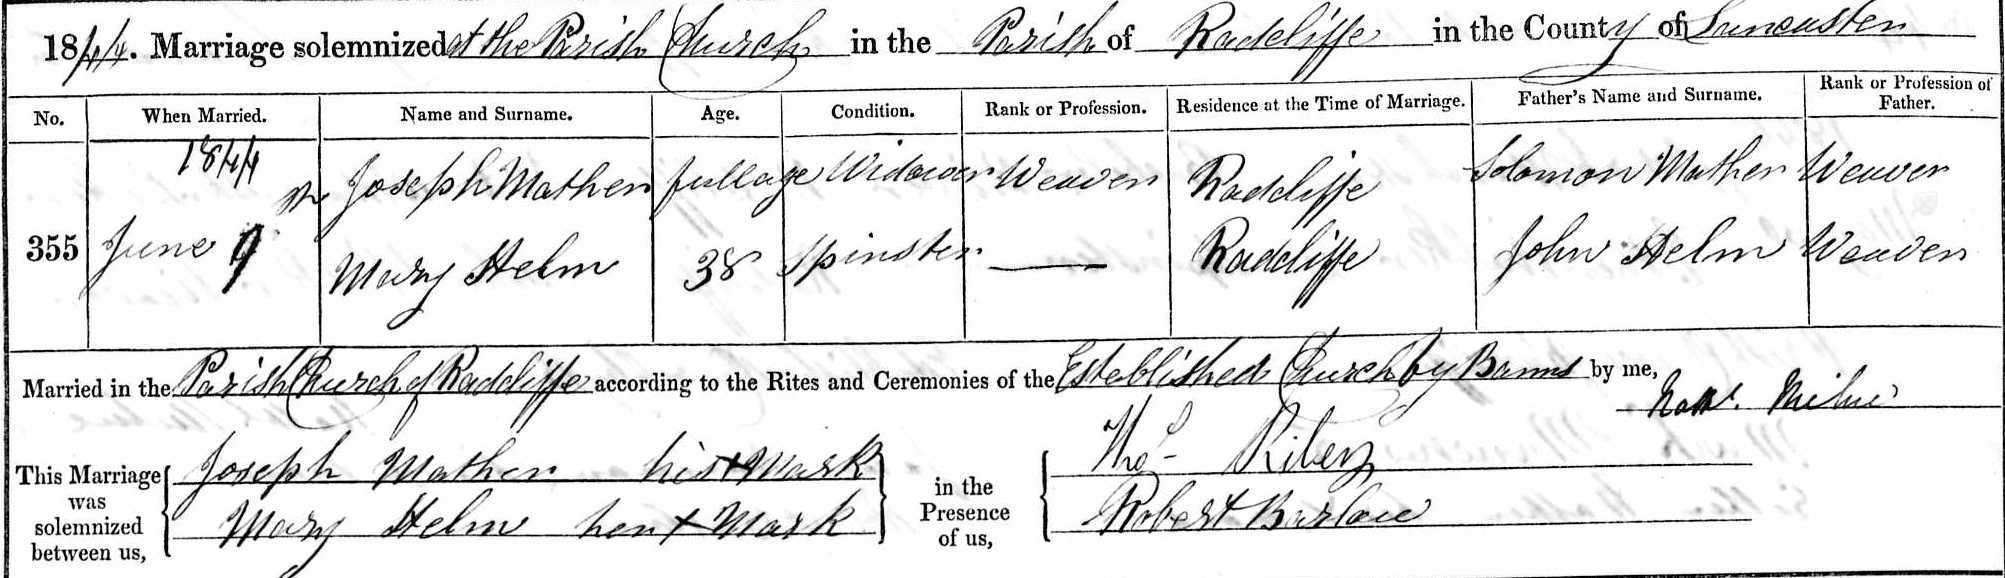 1844. Marriage solemnized at the Parish Church in the Parish of Radcliffe in the County of Lancaster
No. When Married. Name and Surname. Age. Condition. Rank or Profession. Residence at the Time of Marriage. Father's Name and Surname. Rank or Profession of Father.
355 1844 June 9th Joseph Mather full age Widower Weaver Radcliffe Solomon Mather Weaver
Mary Helm 38 Spinster — Radcliffe John Helm Weaver
Married in the Parish Church of Radcliffe according to the Rites and Ceremonies of the Established Church by Banns by me,
Milne
This Marriage was solemnized between us,
Joseph Mather his x Mark
Mary Helm her x Mark
in the Presence of us,
Thos Riley
Robert Barlow